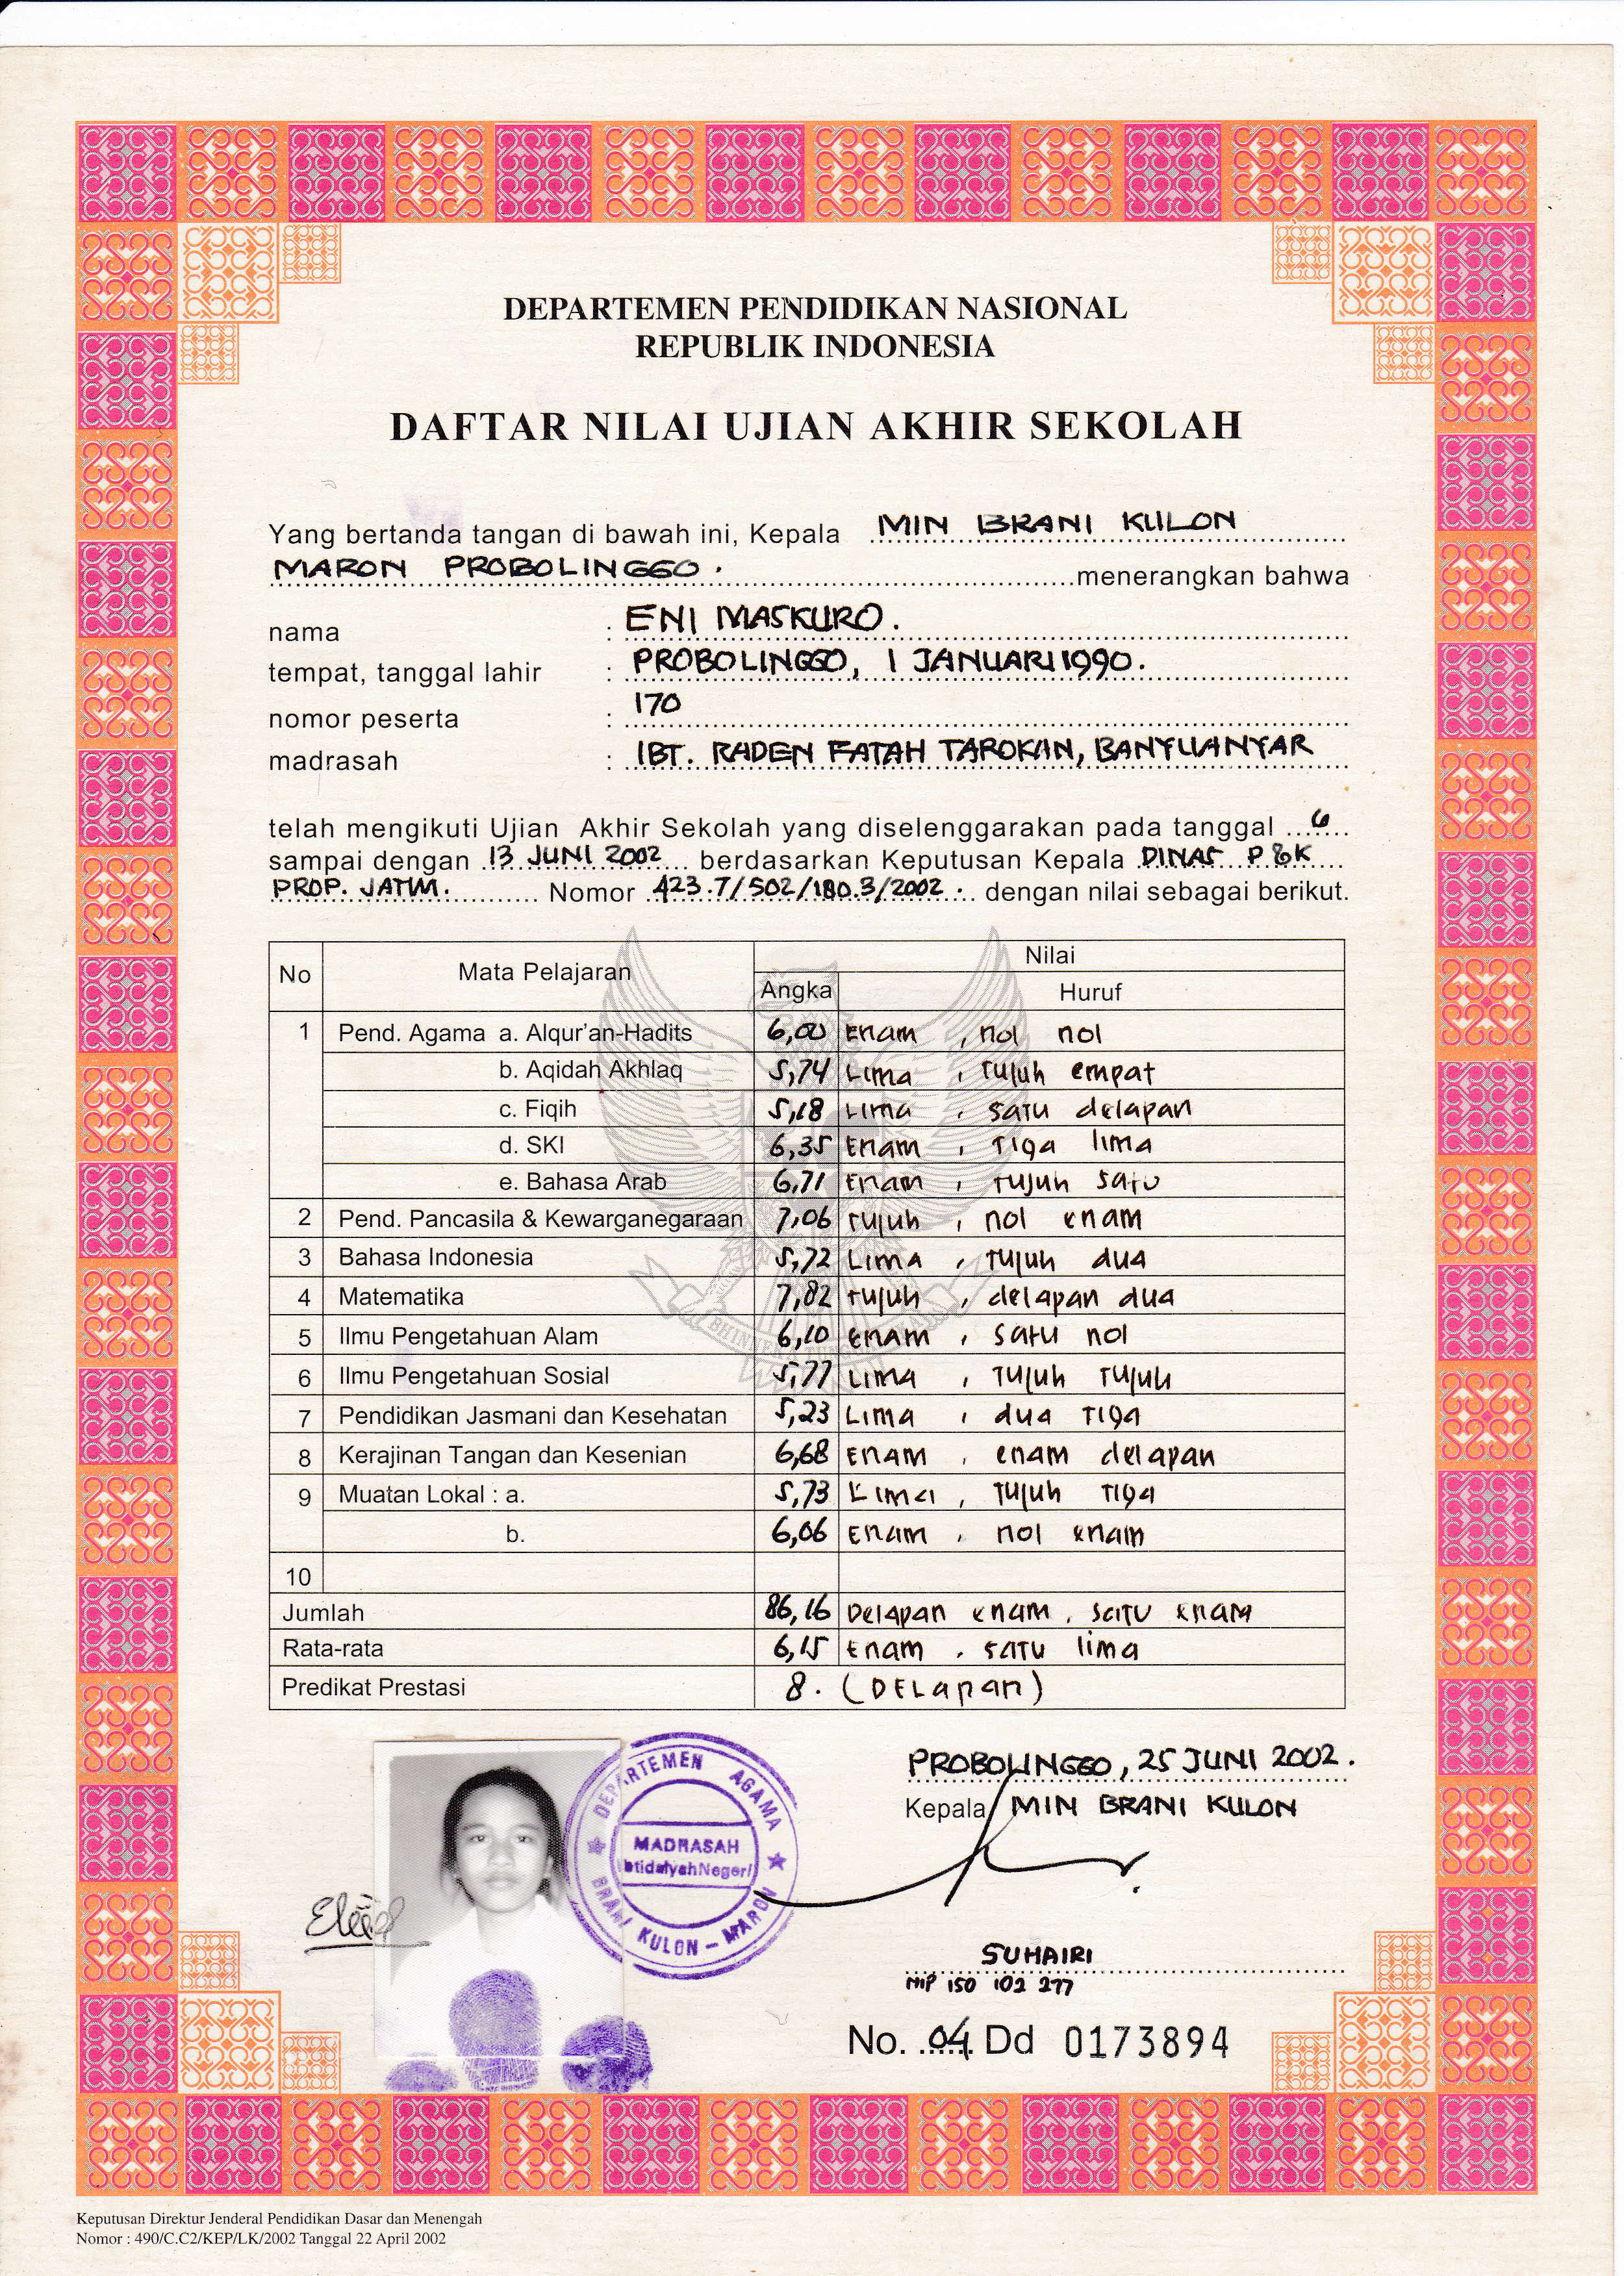 DEPARTEMEN PENDIDIKAN NASIONAL
REPUBLIK INDONESIA
DAFTAR NILAI UJIAN AKHIR SEKOLAH
Yang bertanda tangan di bawah ini, Kepala MIN BRANI KULON
MARON PROBOLINGGO. menerangkan bahwa
nama : ENI MASKURO.
tempat, tanggal lahir : PROBOLINGGO, 1 JANUARI 1990.
nomor peserta : 170
madrasah : IBT. RADEN FATAH TAROKAN, BANYUANYAR
telah mengikuti Ujian Akhir Sekolah yang diselenggarakan pada tanggal 6
sampai dengan 13 JUNI 2002 berdasarkan Keputusan Kepala DINAS P&K
PROP. JATIM. Nomor 423.7/502/180.3/2002. dengan nilai sebagai berikut.
No Mata Pelajaran Nilai
Angka Huruf
1 Pend. Agama a. Alqur'an-Hadits 6,00 Enam , nol nol
b. Aqidah Akhlaq 5,74 Lima , Tujuh empat
c. Fiqih 5,18 Lima , satu delapan
d. SKI 6,35 Enam , Tiga lima
e. Bahasa Arab 6,71 Enam , Tujuh satu
2 Pend. Pancasila & Kewarganegaraan 7,06 Tujuh , nol enam
3 Bahasa Indonesia 5,72 Lima , Tujuh dua
4 Matematika 7,82 Tujuh , delapan dua
5 Ilmu Pengetahuan Alam 6,10 Enam , satu nol
6 Ilmu Pengetahuan Sosial 5,77 Lima , Tujuh Tujuh
7 Pendidikan Jasmani dan Kesehatan 5,23 Lima , dua Tiga
8 Kerajinan Tangan dan Kesenian 6,68 Enam , enam delapan
9 Muatan Lokal : a. 5,73 Lima , Tujuh Tiga
b. 6,06 Enam , nol enam
10
Jumlah 86,16 Delapan enam , satu enam
Rata-rata 6,15 Enam , satu lima
Predikat Prestasi 8. (DELapan)
BHINNEKA TUNGGAL IKA
PROBOLINGGO, 25 JUNI 2002.
Kepala MIN BRANI KULON
DEPARTEMEN AGAMA
MADRASAH
IbtidaiyahNegeri
BRANI KULON - MARON
SUHAIRI
NIP 150 102 277
No. 04 Dd 0173894
Keputusan Direktur Jenderal Pendidikan Dasar dan Menengah
Nomor : 490/C.C2/KEP/LK/2002 Tanggal 22 April 2002